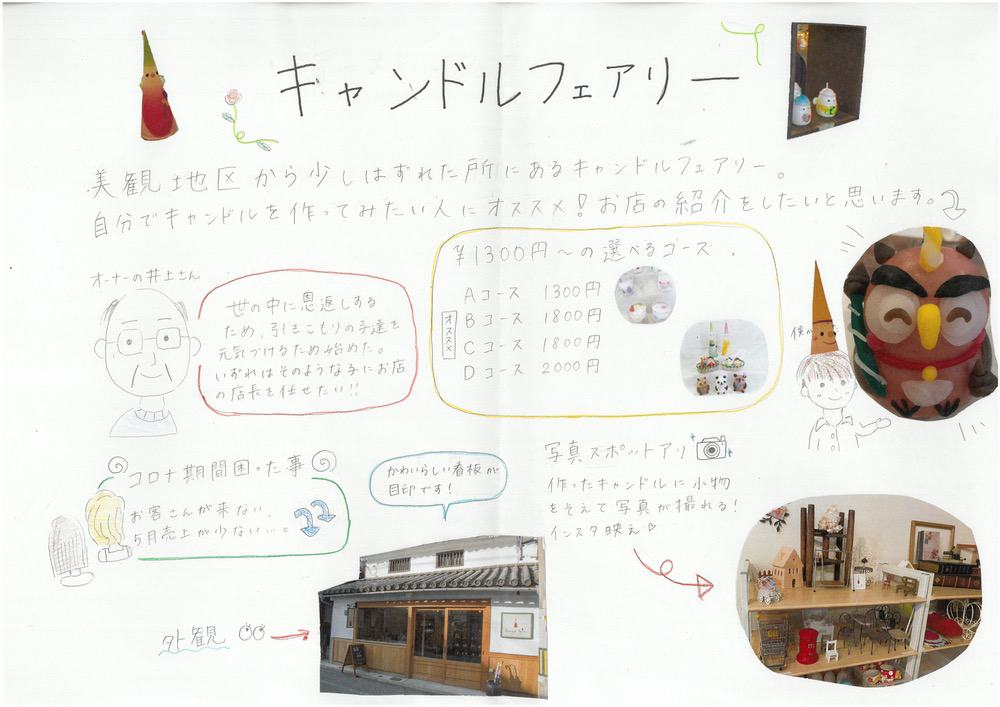 キャンドルフェアリー
美観地区から少しはずれた所にあるキャンドルフェアリー。
自分でキャンドルを作ってみたい人にオススメ!お店の紹介をしたいと思います。
オーナーの井上さん
世の中に恩返しする
ため、引きこもりの子達を
元気づけるため始めた。
いずれはそのような子にお店
の店長を任せたい!!
¥1300円〜の選べるコース.
Aコース 1300円
オススメ
Bコース 1800円
Cコース 1800円
Dコース 2000円
コロナ期間困った事
お客さんが来ない、
5月売上が少ない…。
かわいらしい看板が
目印です!
写真スポットアリ
作ったキャンドルに小物
をそえて写真が撮れる!
インスタ映え♡
外観